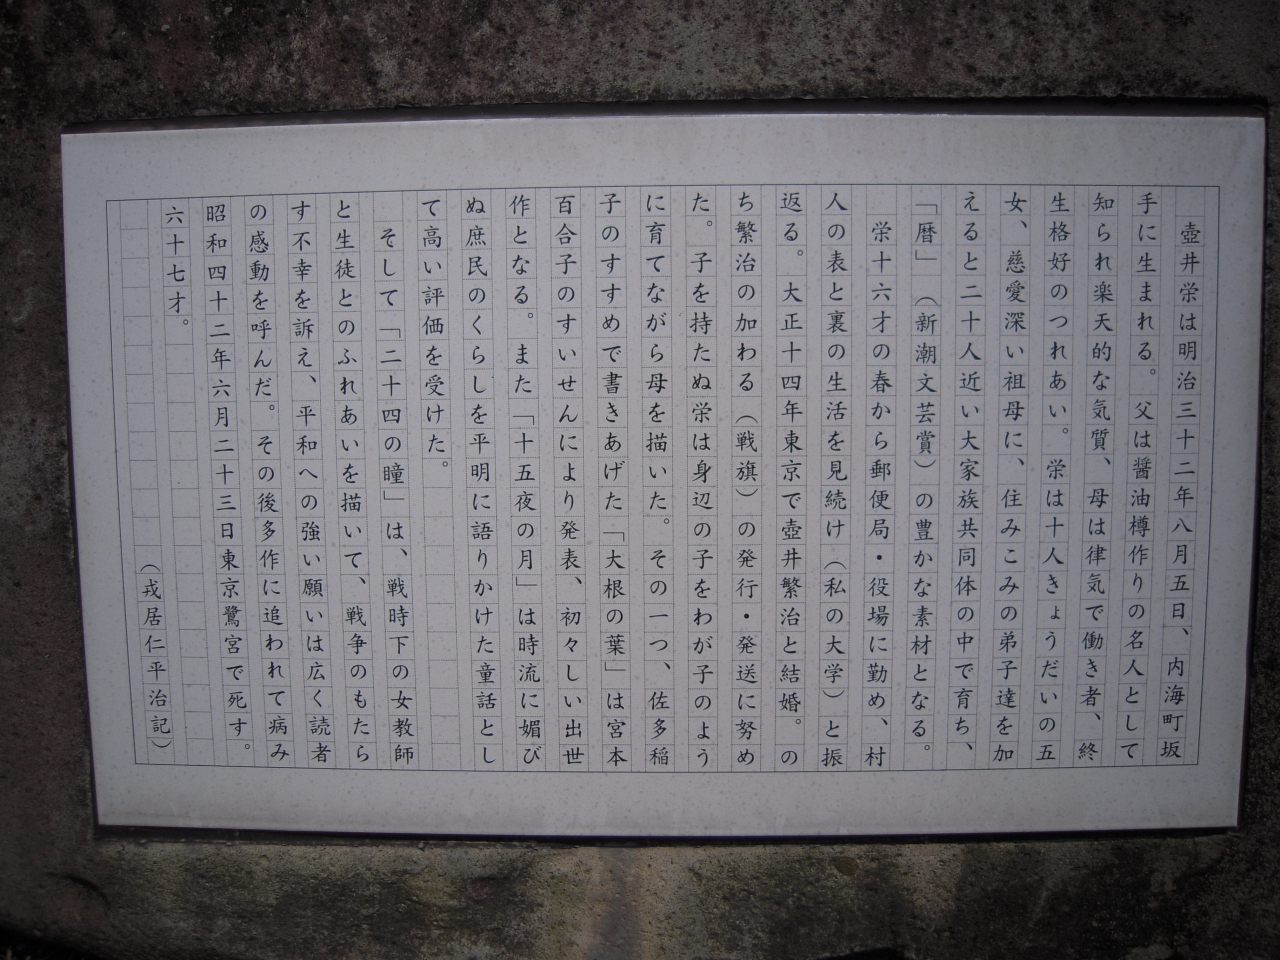 壺井栄は明治三十二年八月五日、内海町坂
手に生まれる。父は醤油樽作りの名人として
知られ楽天的な気質、母は律気で働き者、終
生格好のつれあい。栄は十人きょうだいの五
女、慈愛深い祖母に、住みこみの弟子達を加
えると二十人近い大家族共同体の中で育ち、
「暦」（新潮文芸賞）の豊かな素材となる。
栄十六才の春から郵便局・役場に勤め、村
人の表と裏の生活を見続け（私の大学）と振
返る。大正十四年東京で壺井繁治と結婚。の
ち繁治の加わる（戦旗）の発行・発送に努め
た。子を持たぬ栄は身辺の子をわが子のよう
に育てながら母を描いた。その一つ、佐多稲
子のすすめで書きあげた「大根の葉」は宮本
百合子のすいせんにより発表、初々しい出世
作となる。また「十五夜の月」は時流に媚び
ぬ庶民のくらしを平明に語りかけた童話とし
て高い評価を受けた。
そして「二十四の瞳」は、戦時下の女教師
と生徒とのふれあいを描いて、戦争のもたら
す不幸を訴え、平和への強い願いは広く読者
の感動を呼んだ。その後多作に追われて病み
昭和四十二年六月二十三日東京鷺宮で死す。
六十七才。
（戎居仁平治記）